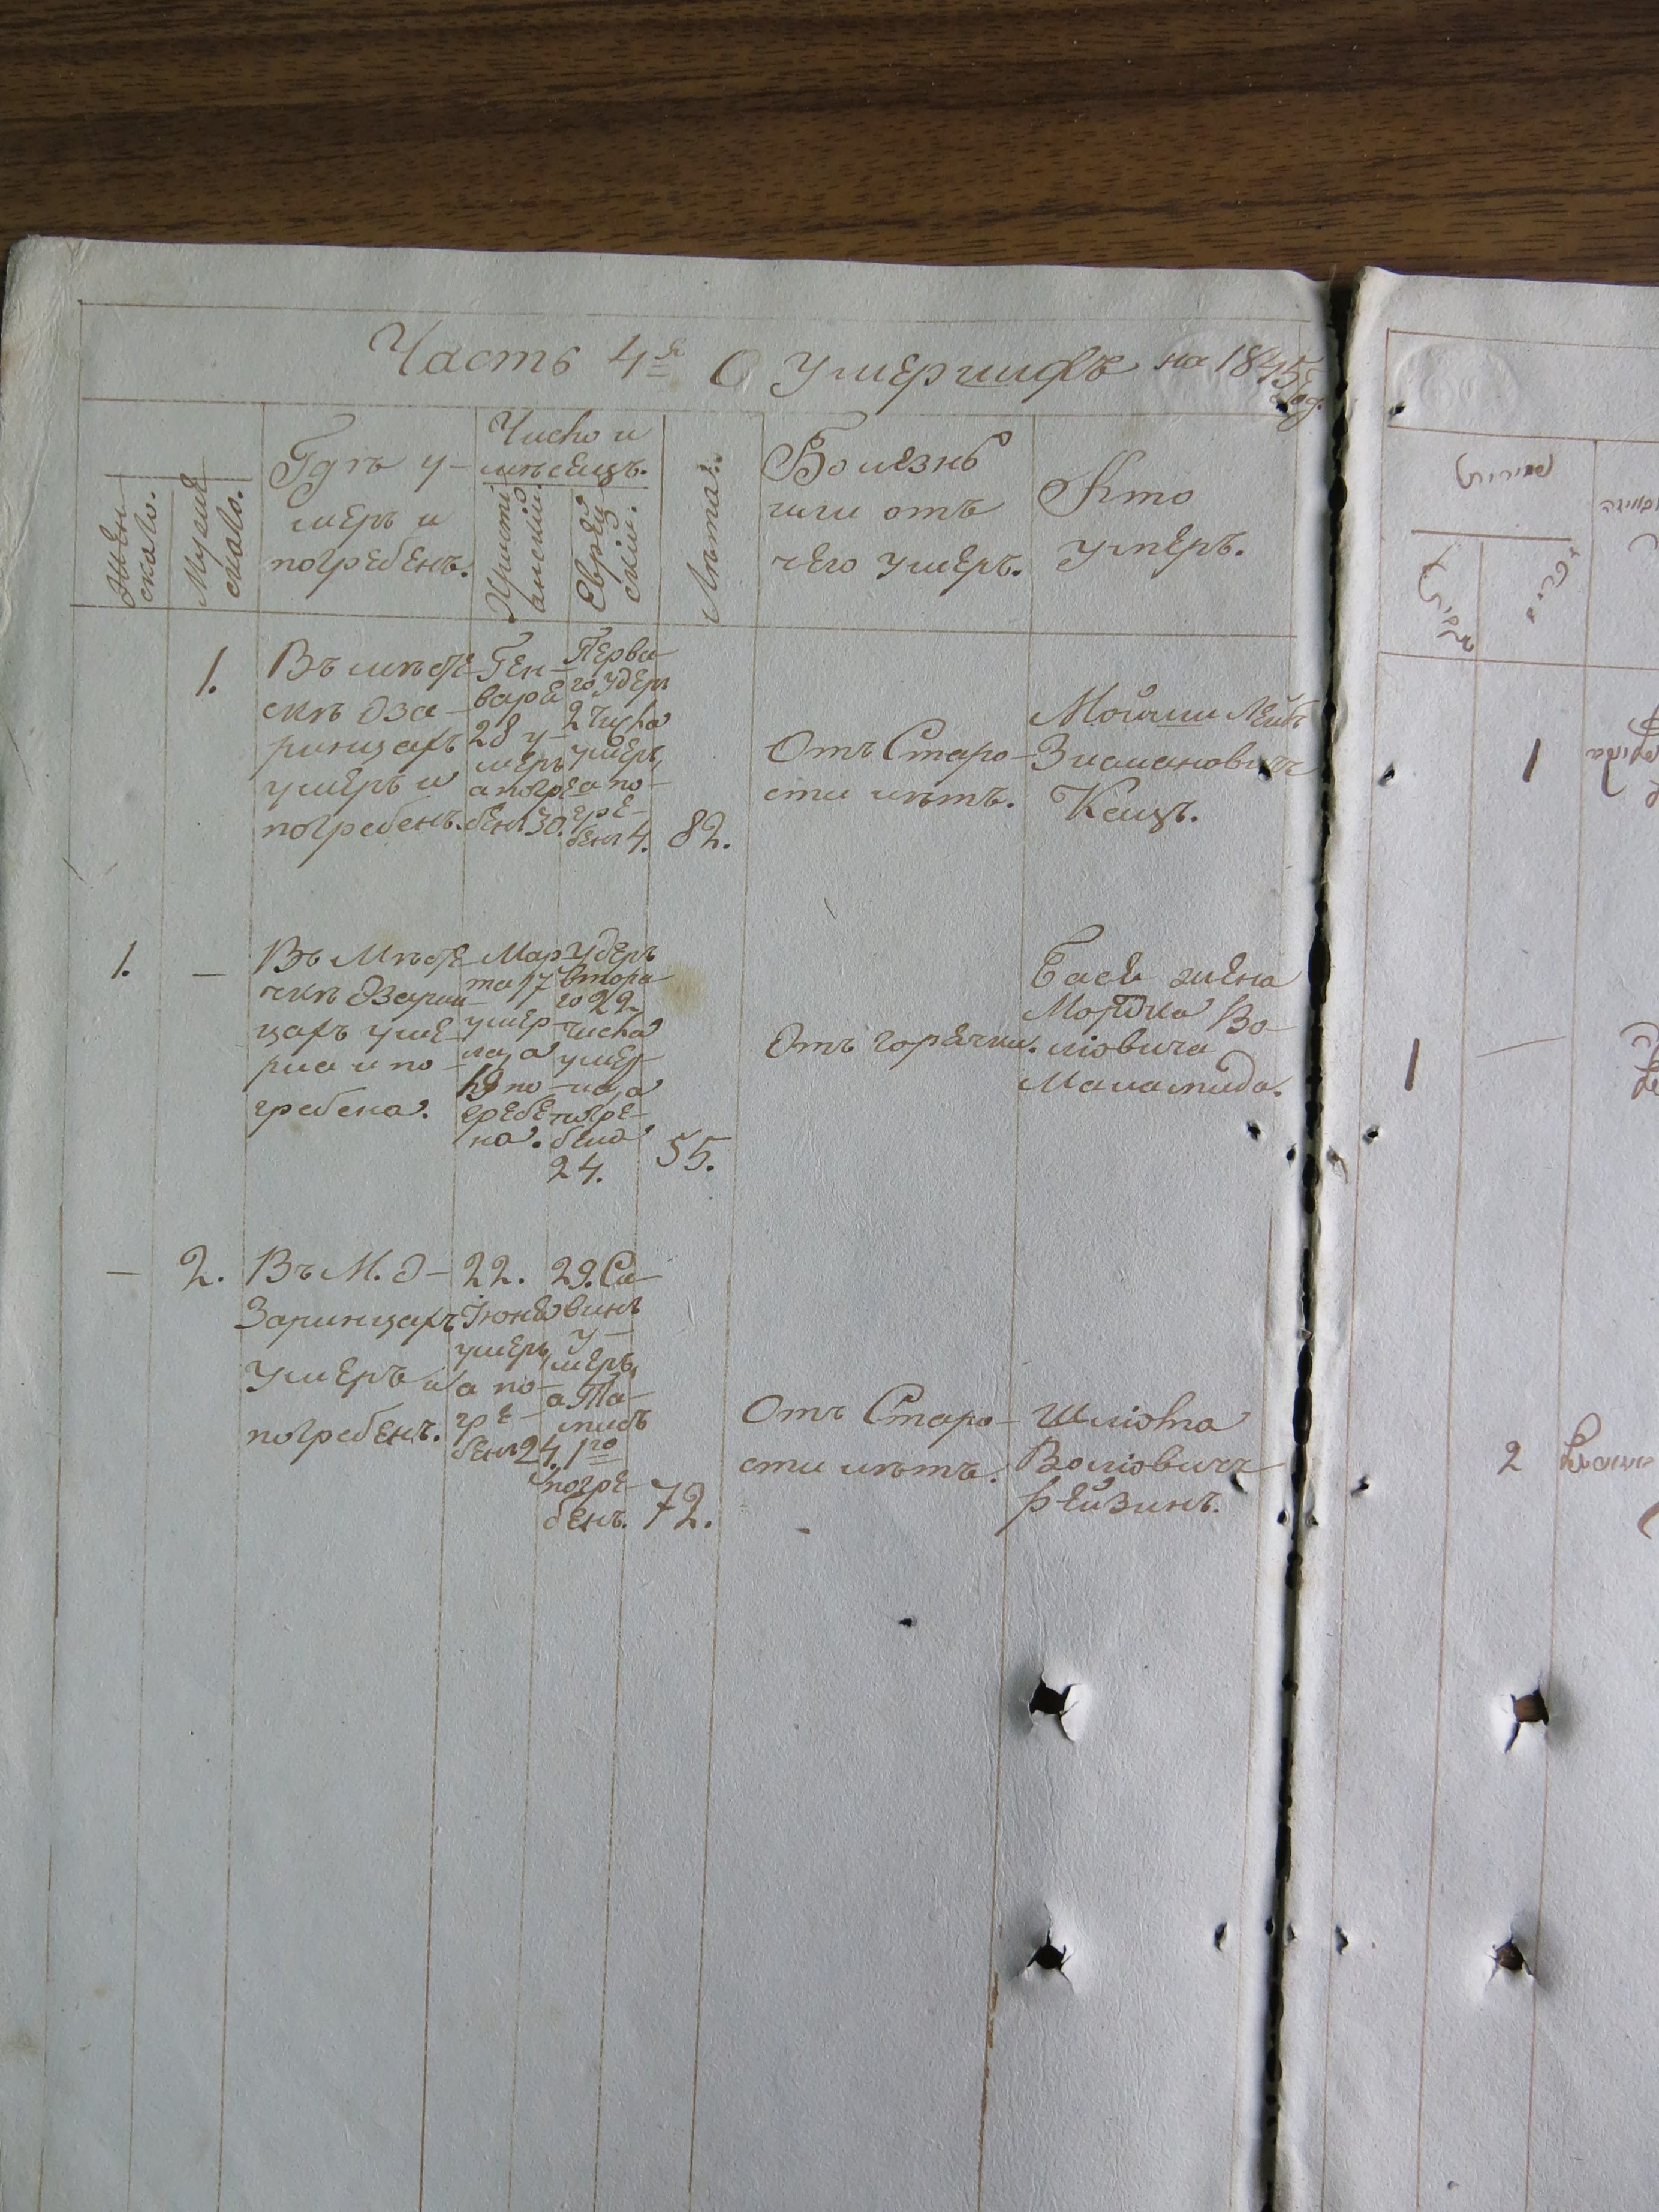 Часть 4я О умершихъ на 1845 год.
Женскаго.
Мужескаго.
Гдѣ у-
меръ и
погребенъ.
Число и
мѣсецъ.
Христіанскій.
Еврейскій.
Лѣта.
Болезнь
или отъ
чего умеръ.
Кто
умеръ.
1.
Въ мѣсте-
скѣ Оза-
ринцахъ
умеръ и
погребенъ.
Ген-
варя
28 у-
меръ
а погре
бенъ 30.
Перва-
го Удеръ
2 числа
умеръ,
а по-
гре-
бенъ 4.
82.
Отъ Старо-
сти лѣтъ.
Мойши Лейбъ
Зисманович
Кацъ.
1.
—
Въ Мѣсте
чкѣ Озарин-
цахъ уме-
рла и по-
гребена.
Мар
та 17
умер-
ла, а
19 по-
гребе
на.
Удеръ
втора
го 22
числа
умер-
ла, а
погре-
бена
24.
55.
Отъ горячки.
Бася жена
Мордка Во-
лювича
Маламида.
—
2.
Въ М. О-
Заринцахъ
Умеръ и
погребенъ.
22.
Іюня
умеръ,
а по-
гре-
бенъ 24.
29. Си-
винъ
у-
меръ,
а Та-
мидъ
1го
погре-
бенъ.
72.
Отъ Старо-
сти лѣтъ.
Шліома
Воліовичъ
Фейзинъ.
1
1
—
2